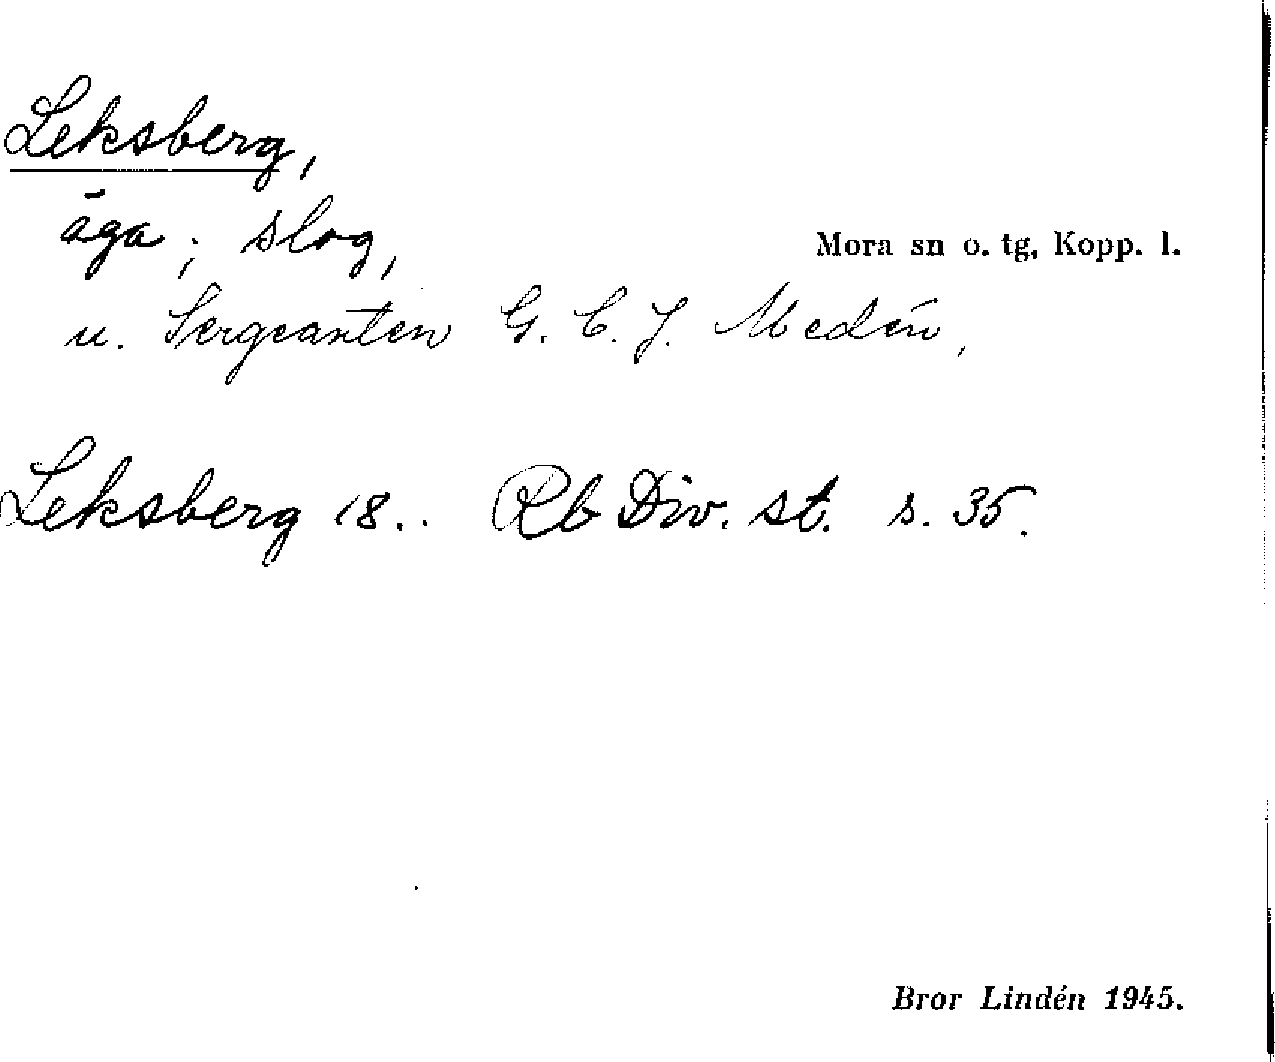 Leksberg,
äga; slog,
Mora sn o. tg, Kopp. l.
u. Sergeanten G. C. J. Medén,
Leksberg 18.. Rb Div. st. s. 35.
Bror Lindén 1945.